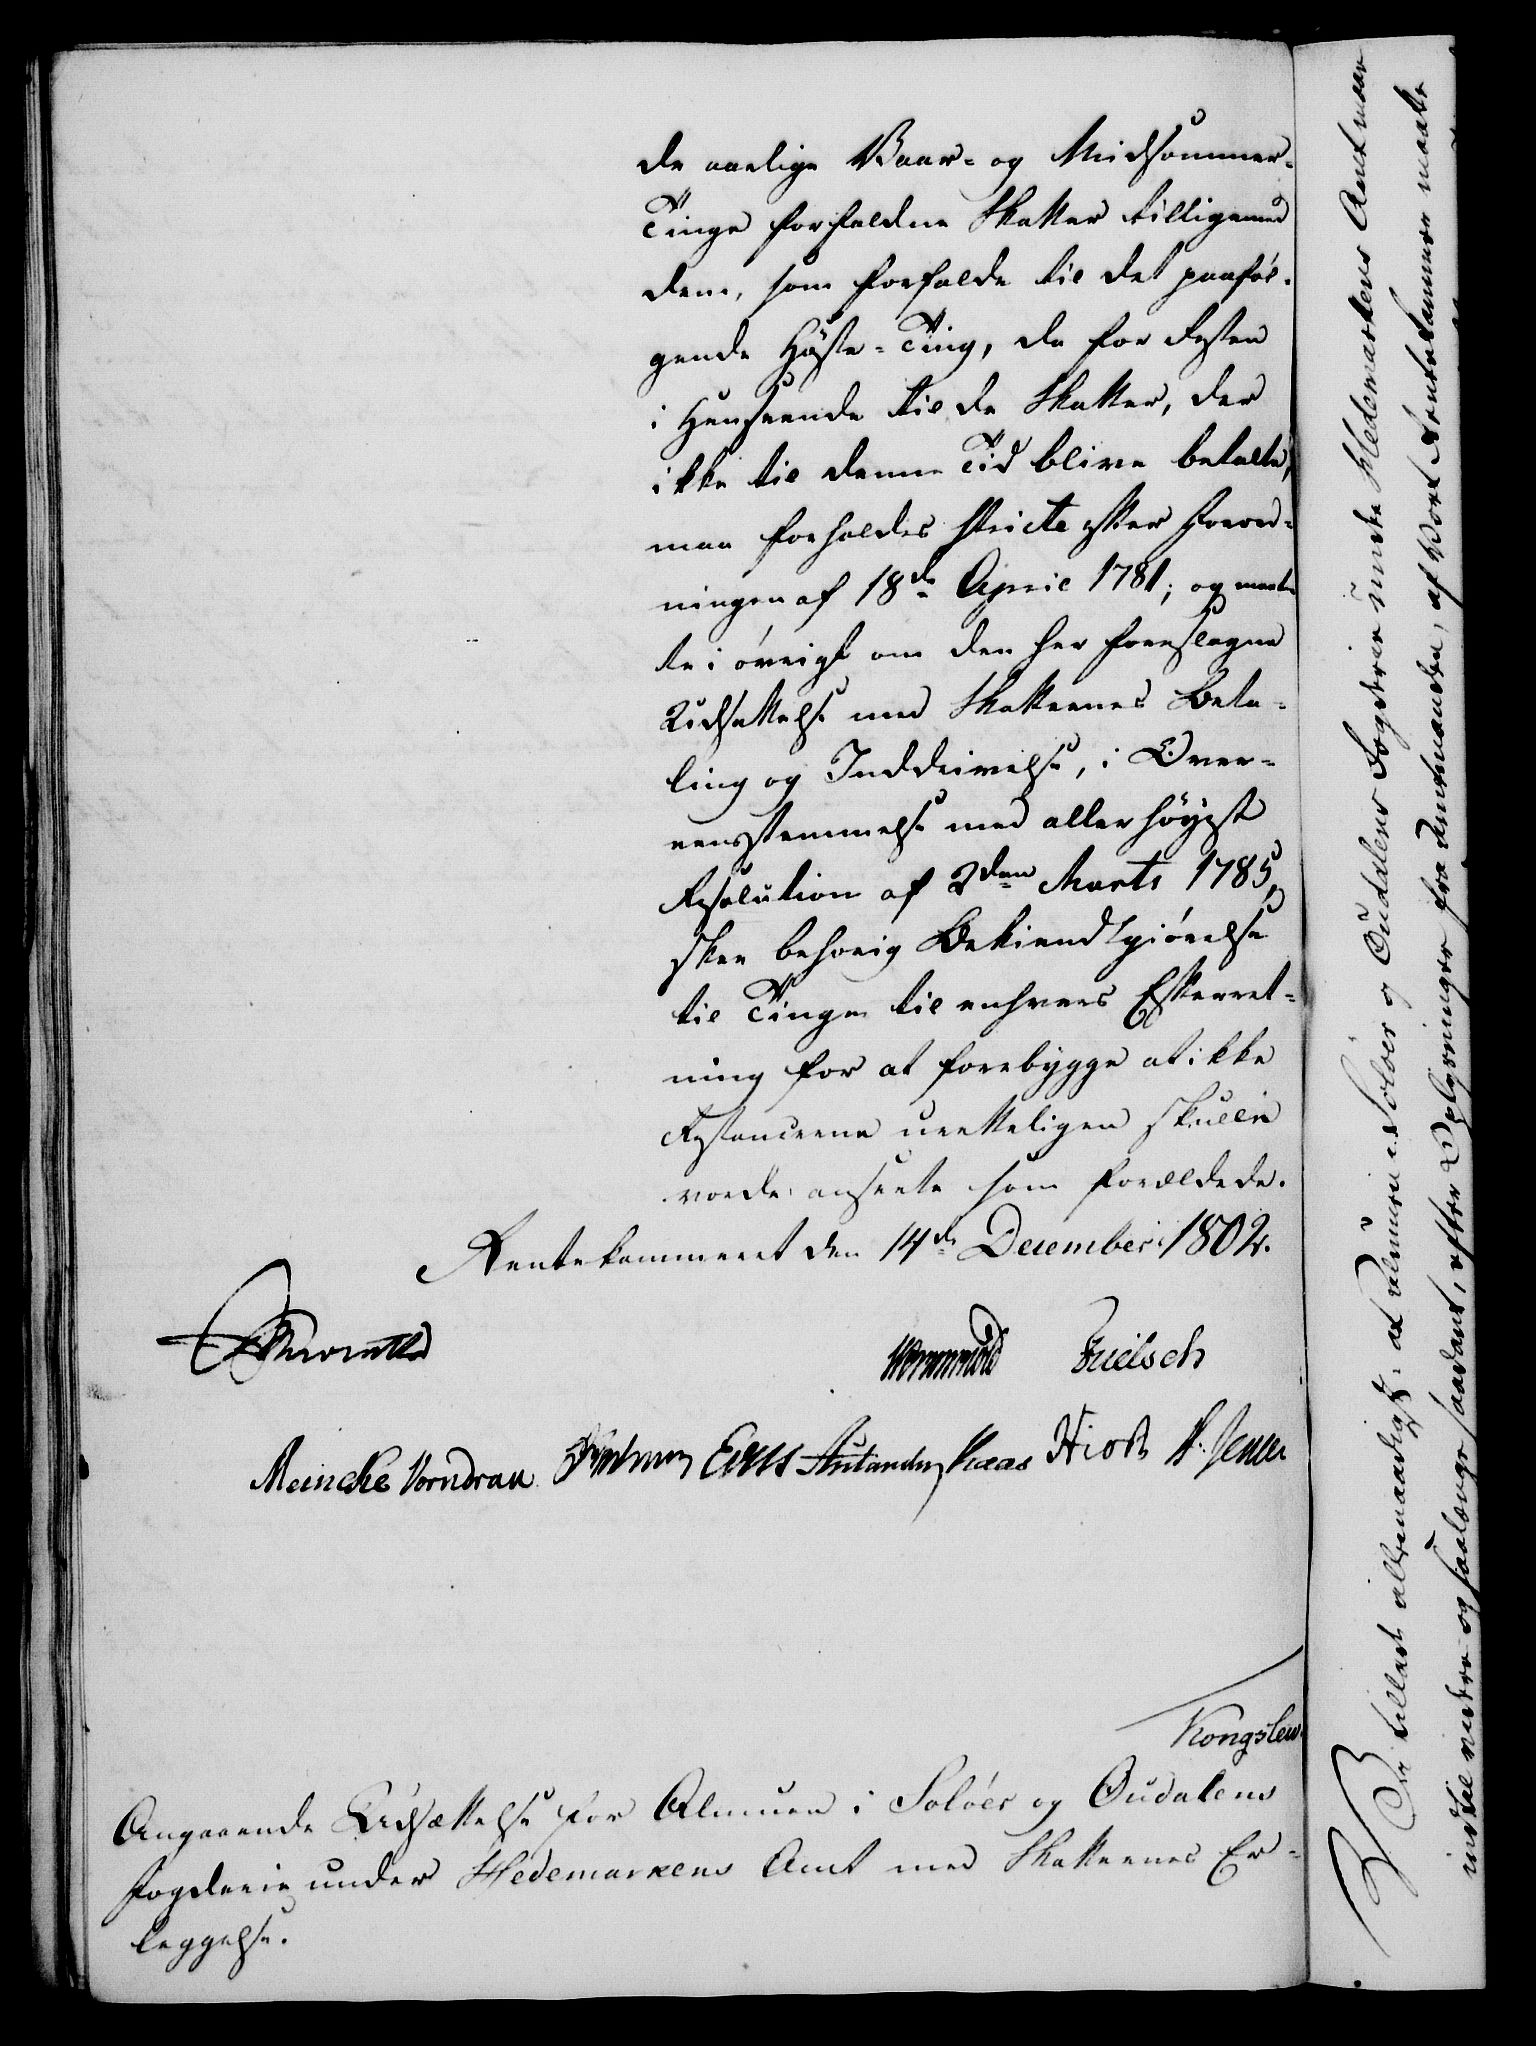 de aarlige Vaar- og Midsommer-
Tinge forfaldne Skatter tilligemed
dem, som forfalde til det paaføl-
gende Høste-Ting, da for Resten
i Henseende til de Skatter, der
ikke til denne Tid blive betalte,
maa forholdes stricte efter Forord-
ningen af 18de April 1781; og maat-
te i øvrigt om den her foreslagne
Udsættelse med Skatternes Beta-
ling og Inddrivelse, i Over-
eensstemmelse med allerhøyest
Resolution af 2den Marts 1785,
skee behørig Bekiendtgiørelse
til Tinge til enhvers Efterret-
ning for at forebygge at ikke
Restancerne uretteligen skulle
vorde ansete som forældede.
Rentekammeret den 14de December 1802.
Wormskiold
Meincke Vorndran Kaas Hiort
Kongslew
Angaaende Udsættelse for Almuen i Soløer og Oudalens
Fogderie under Hedemarkens Amt med Skatternes Er-
leggelse.
Vi tillade allernaadigst: at Almuen i Soløer og Oudalens Fogderie under Hedemarkens Amt maae
indtil videre og saalænge saadant, efter Oplysninger fra Amtmanden, af Vort Rentekammer maatte